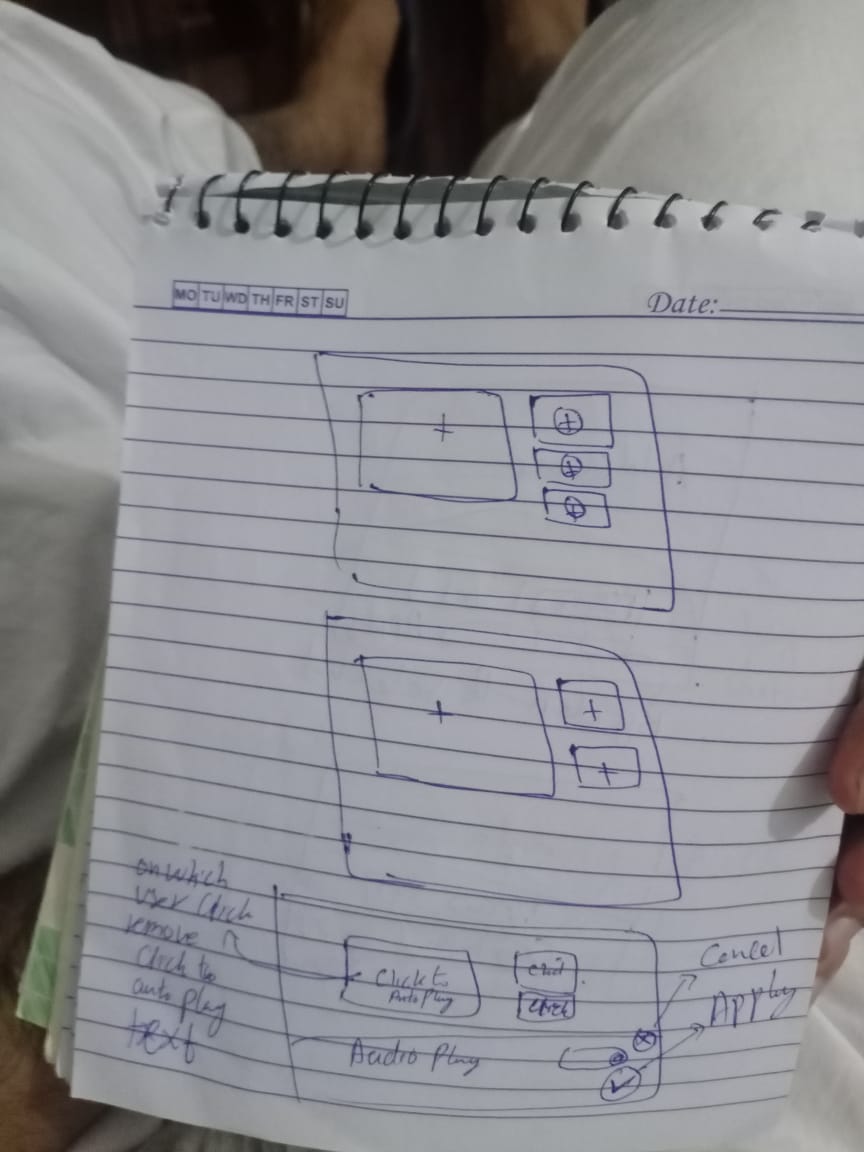 MO TU WD TH FR ST SU
Date:
+ ⊕
⊕
⊕
+ +
+
on which
user click
remove
Click to
auto play
text
Click to
Auto Play
click
Cancel
Apply
Audio Play